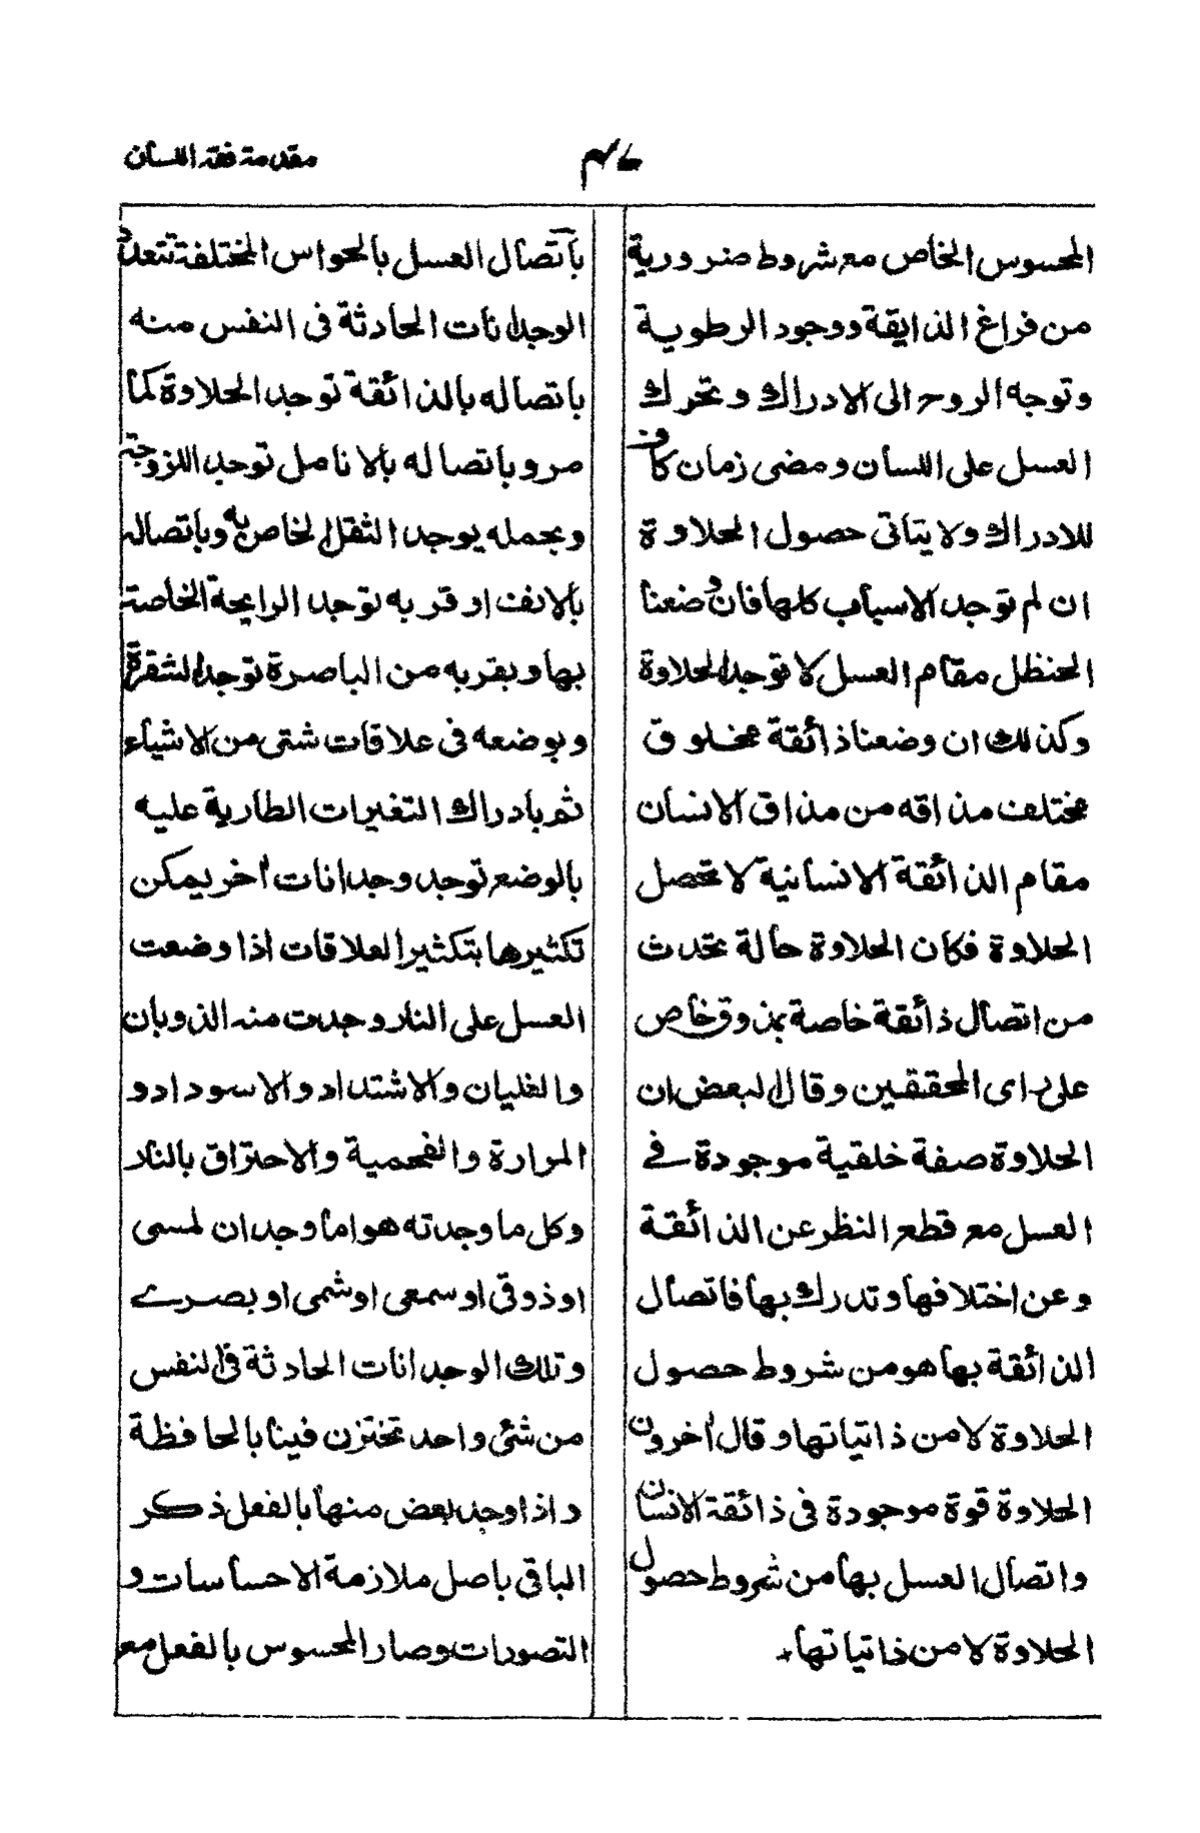 مقدمة فقه اللسان
المحسوس الخاص مع شروط ضرورية
من فراغ الذايقة ووجود الرطوبة
وتوجه الروح الى الادراك وتحرك
العسل على اللسان ومضى زمان كاف
للادراك ولا يتاتى حصول الحلاوة
ان لم توجد الاسباب كلها فان وضعنا
الحنظل مقام العسل لا توجد الحلاوة
وكذلك ان وضعنا ذائقة مخلوق
مختلف مذاقه من مذاق الانسان
مقام الذائقة الانسانية لا تحصل
الحلاوة فكان الحلاوة حالة تحدث
من اتصال ذائقة خاصة بمذوق خاص
على راى المحققين وقال البعض ان
الحلاوة صفة خلقية موجودة في
العسل مع قطع النظر عن الذائقة
وعن اختلافها وتدرك بها فاتصال
الذائقة بها هو من شروط حصول
الحلاوة لا من ذاتياتها وقال اخرون
الحلاوة قوة موجودة فى ذائقة الانسان
واتصال العسل بها من شروط حصول
الحلاوة لا من ذاتياتها
باتصال العسل بالحواس المختلفة تتعدد
الوجدانات الحادثة فى النفس منه
باتصاله بالذائقة توجد الحلاوة كما
مر وباتصاله بالانامل توجد اللزوجة
وبحمله يوجد الثقل الخاص به وباتصاله
بالانف او قربه توجد الرايحة الخاصة
بها وبقربه من الباصرة توجد الشقرة
وبوضعه فى علاقات شتى من الاشياء
ثم بادراك التغيرات الطارية عليه
بالوضع توجد وجدانات اخر يمكن
تكثيرها بتكثير العلاقات اذا وضعت
العسل على النار وجدت منه الذوبان
والغليان والاشتداد والاسوداد و
المرارة والفحمية والاحتراق بالنار
وكل ما وجدته هو اما وجدان لمسى
او ذوقى او سمعى او شمى او بصرے
وتلك الوجدانات الحادثة فى النفس
من شئ واحد تختزن فينا بالحافظة
واذا وجد بعض منها بالفعل ذكر
الباقى باصل ملازمة الاحساسات و
التصورات وصار المحسوس بالفعل مع